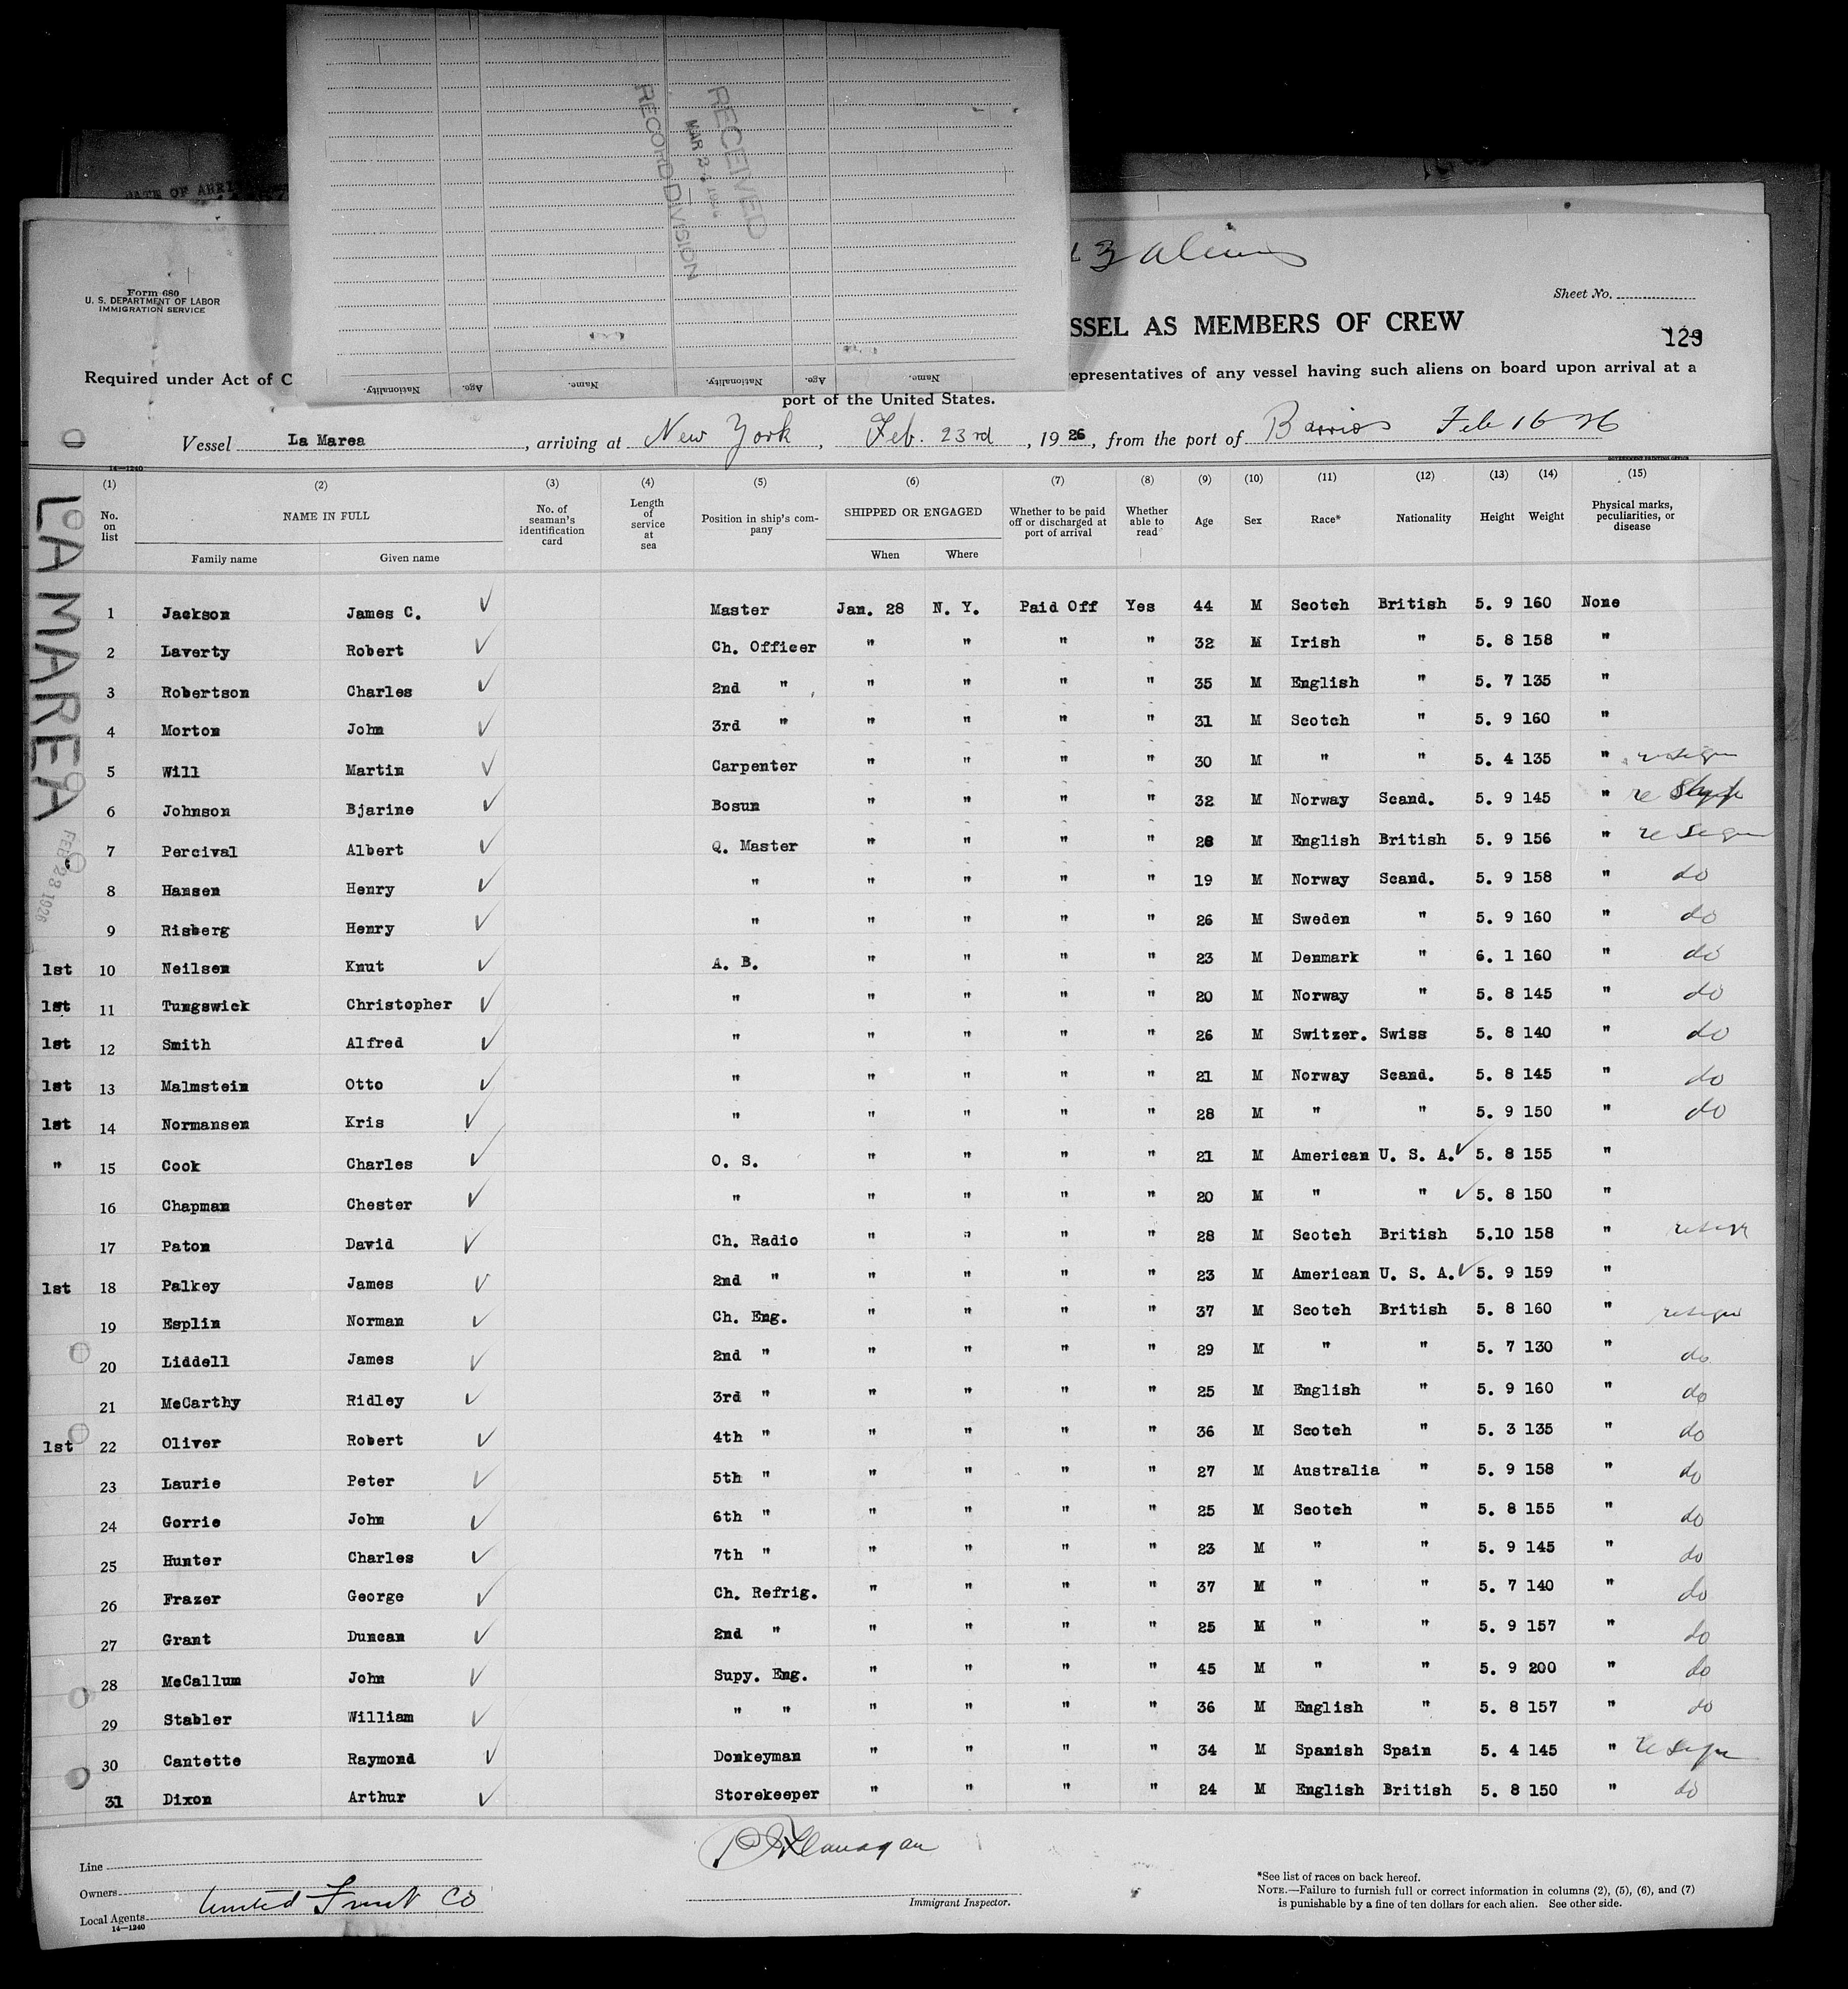 RECEIVED
MAR
RECORD DIVISION
Nationality. Age. Name. Nationality. Age. Name.
DATE OF ARRI
3 aliens
Form 680
U. S. DEPARTMENT OF LABOR
IMMIGRATION SERVICE
Sheet No.
SSEL AS MEMBERS OF CREW
129
Required under Act of C
epresentatives of any vessel having such aliens on board upon arrival at a
port of the United States.
Vessel La Marea, arriving at New York, Feb. 23rd, 1926, from the port of Barrios Feb 16 26
14—1240
LA MAREA
FEB 23 1926
(1) (2) (3) (4) (5) (6) (7) (8) (9) (10) (11) (12) (13) (14) (15)
No. on list NAME IN FULL Family name Given name No. of seaman's identification card Length of service at sea Position in ship's company SHIPPED OR ENGAGED When Where Whether to be paid off or discharged at port of arrival Whether able to read Age Sex Race* Nationality Height Weight Physical marks, peculiarities, or disease
1 Jackson James C. ✓ Master Jan. 28 N. Y. Paid Off Yes 44 M Scotch British 5. 9 160 None
2 Laverty Robert ✓ Ch. Officer " " " " 32 M Irish " 5. 8 158 "
3 Robertson Charles ✓ 2nd " " " " " 35 M English " 5. 7 135 "
4 Morton John ✓ 3rd " " " " " 31 M Scotch " 5. 9 160 "
5 Will Martin ✓ Carpenter " " " " 30 M " " 5. 4 135 " resign
6 Johnson Bjarine ✓ Bosun " " " " 32 M Norway Scand. 5. 9 145 " re
7 Percival Albert ✓ Q. Master " " " " 28 M English British 5. 9 156 " resign
8 Hansen Henry ✓ " " " " " 19 M Norway Scand. 5. 9 158 " do
9 Risberg Henry ✓ " " " " " 26 M Sweden " 5. 9 160 " do
1st 10 Neilsen Knut ✓ A. B. " " " " 23 M Denmark " 6. 1 160 " do
1st 11 Tungswick Christopher ✓ " " " " " 20 M Norway " 5. 8 145 " do
1st 12 Smith Alfred ✓ " " " " " 26 M Switzer. Swiss 5. 8 140 " do
1st 13 Malmstein Otto ✓ " " " " " 21 M Norway Scand. 5. 8 145 " do
1st 14 Normansen Kris ✓ " " " " " 28 M " " 5. 9 150 " do
" 15 Cook Charles ✓ O. S. " " " " 21 M American U. S. A. ✓ 5. 8 155 "
16 Chapman Chester ✓ " " " " " 20 M " " ✓ 5. 8 150 "
17 Paton David ✓ Ch. Radio " " " " 28 M Scotch British 5.10 158 " resign
1st 18 Palkey James ✓ 2nd " " " " " 23 M American U. S. A. ✓ 5. 9 159 "
19 Esplin Norman ✓ Ch. Eng. " " " " 37 M Scotch British 5. 8 160 " resign
20 Liddell James ✓ 2nd " " " " " 29 M " " 5. 7 130 " do
21 McCarthy Ridley ✓ 3rd " " " " " 25 M English " 5. 9 160 " do
1st 22 Oliver Robert ✓ 4th " " " " " 36 M Scotch " 5. 3 135 " do
23 Laurie Peter ✓ 5th " " " " " 27 M Australia " 5. 9 158 " do
24 Gorrie John ✓ 6th " " " " " 25 M Scotch " 5. 8 155 " do
25 Hunter Charles ✓ 7th " " " " " 23 M " " 5. 9 145 " do
26 Frazer George ✓ Ch. Refrig. " " " " 37 M " " 5. 7 140 " do
27 Grant Duncan ✓ 2nd " " " " " 25 M " " 5. 9 157 " do
28 McCallum John ✓ Supy. Eng. " " " " 45 M " " 5. 9 200 " do
29 Stabler William ✓ " " " " " " 36 M English " 5. 8 157 " do
30 Cantette Raymond ✓ Donkeyman " " " " 34 M Spanish Spain 5. 4 145 " resign
31 Dixon Arthur ✓ Storekeeper " " " " 24 M English British 5. 8 150 " do
Line
Owners
Local Agents United Fruit Co
14—1240
Flanagan
Immigrant Inspector.
*See list of races on back hereof.
NOTE.—Failure to furnish full or correct information in columns (2), (5), (6), and (7)
is punishable by a fine of ten dollars for each alien. See other side.